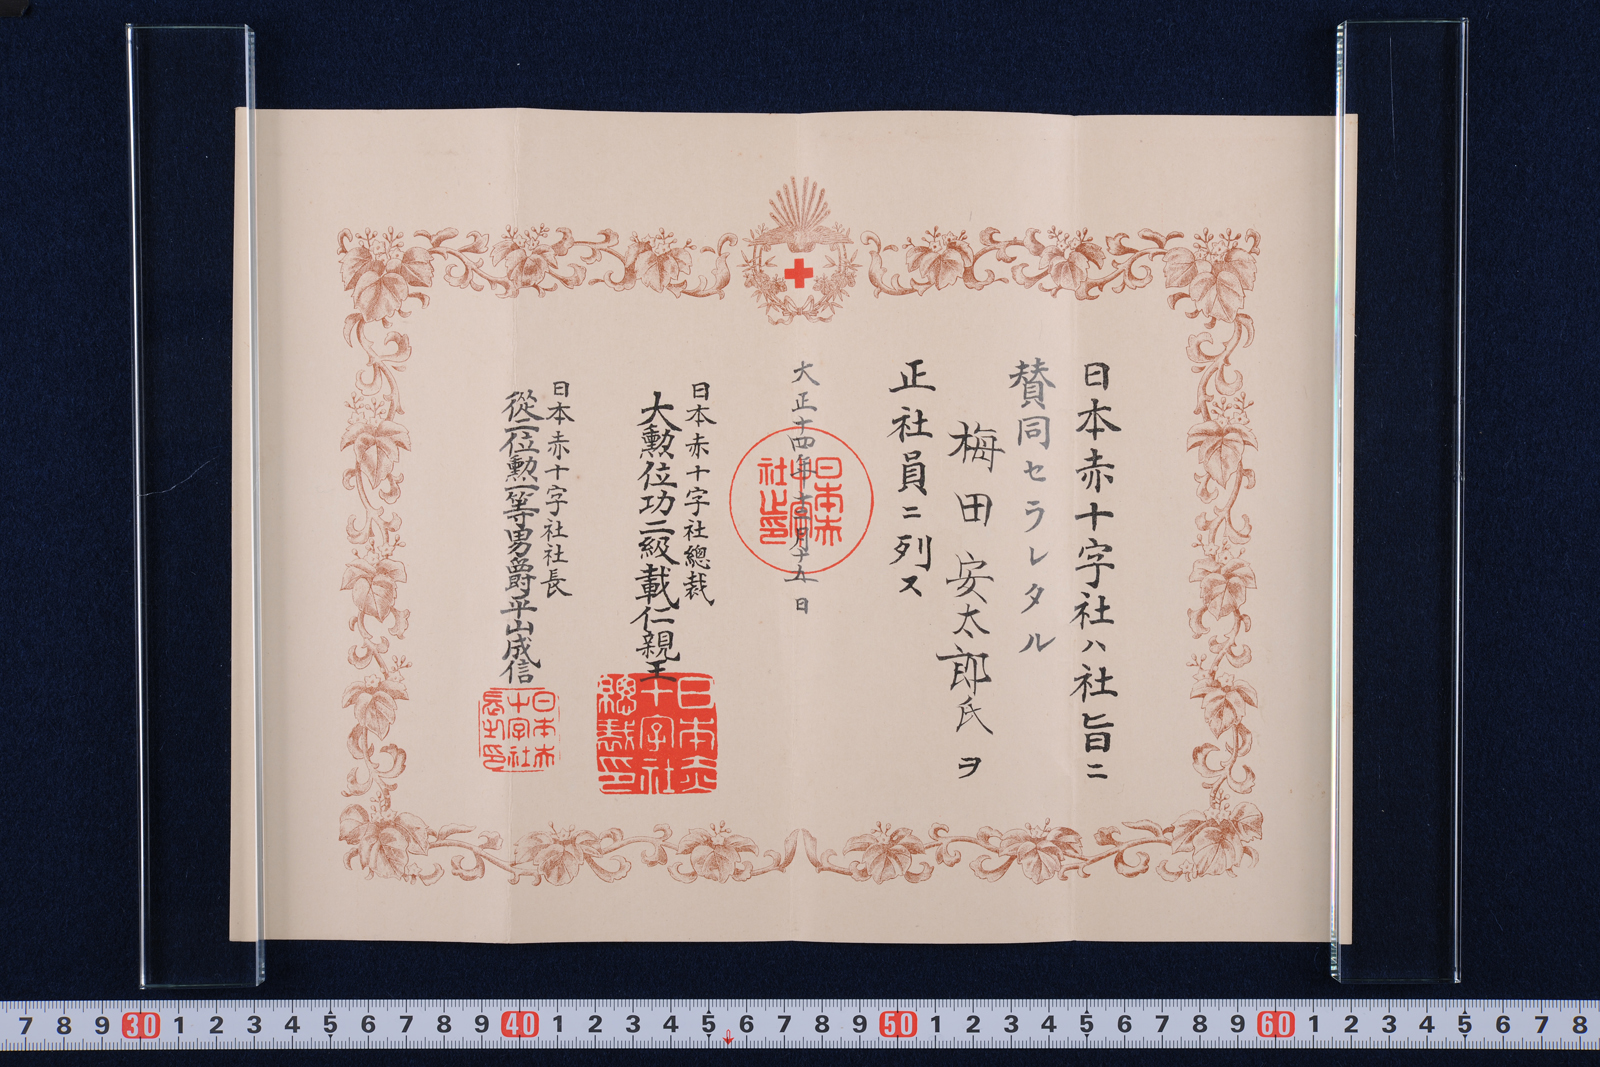 日本赤十字社ハ社旨ニ
賛同セラレタル
梅田安太郎氏ヲ
正社員ニ列ス
大正十四年十二月十五日
日本赤十字社之印
日本赤十字社總裁
大勲位功二級載仁親王
日本赤十字社總裁印
日本赤十字社社長
從二位勲一等男爵平山成信
日本赤十字社長之印
7 8 9 30 1 2 3 4 5 6 7 8 9 40 1 2 3 4 5 6 7 8 9 50 1 2 3 4 5 6 7 8 9 60 1 2 3 4 5 6 7 8